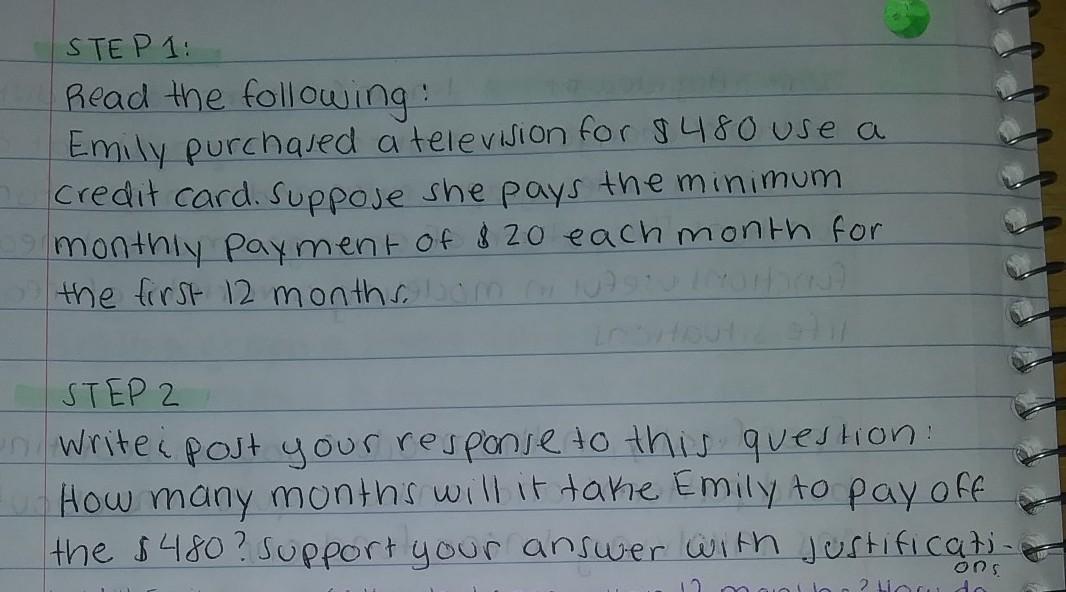 STEP 1:
Read the following:
Emily purchased a television for $480 use a
credit card. Suppose she pays the minimum
monthly payment of $20 each month for
the first 12 months.
STEP 2
Write & post your response to this question:
How many months will it take Emily to pay off
the $480? Support your answer with justificati-
ons
12 months? How do